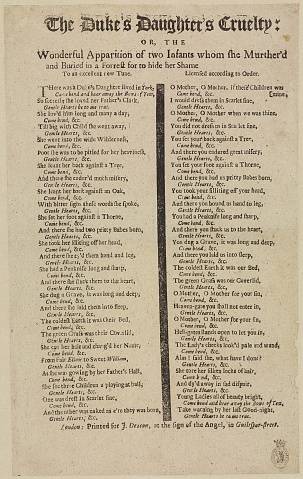 The Duke's Daughter's Cruelty:
OR, THE
Wonderful Apparition of two Infants whom she Murther'd
and Buried in a Forrest for to hide her Shame
To an excellent new Tune. Licensed according to Order.
THere was a Duke's Daughter lived in York,
Come bend and bear away the Bows of Yew,
So secretly she loved her Father's Clark,
Gentle Hearts be to me true.
She lov'd him long and many a day,
Come bend, &c.
Till big with Child she went away,
Gentle Hearts, &c.
She went into the wide Wilderness,
Come bend, &c.
Poor she was to be pitied for her heaviness,
Gentle Hearts, &c.
She leant her back against a Tree,
Come bend, &c.
And there she endur'd much misery,
Gentle Hearts, &c.
She leant her back against an Oak,
Come bend, &c.
With bitter sighs these words she spoke,
Gentle Hearts, &c.
She set her foot against a Thorne,
Come bend, &c.
And there she had two pritty Babes born,
Gentle Hearts, &c.
She took her filliting off her head,
Come bend, &c.
And there she ty'd them hand and leg,
Gentle Hearts, &c.
She had a Penknife long and sharp,
Come bend, &c.
And there she stuck them to the heart,
Gentle Hearts, &c.
She dug a Grave, it was long and deep,
Come bend, &c.
And there she laid them in to sleep,
Gentle Hearts, &c.
The coldest Earth it was their Bed,
Come bend, &c.
The green Grass was their Coverlid,
Gentle Hearts, &c.
Come bend, &c.
Gentle Hearts, &c.
As she was going by her Father's Hall,
Come bend, &c.
She see three Children a playing at ball,
Gentle Hearts, &c.
One was drest in Scarlet fine,
Come bend, &c.
And the other was naked as e're they was born,
Gentle Hearts, &c.
O Mother, O Mother, if these Children was
mine,
Come bend, &c.
I would dress them in Scarlet fine,
Gentle Hearts, &c.
O Mother, O Mother when we was thine,
Come bend, &c.
You did not dress us in Scarlet fine,
Gentle Hearts, &c.
You set your back against a Tree,
Come bend, &c.
And there you endured great misery,
Gentle Hearts, &c.
You set your foot against a Thorne,
Come bend, &c.
And there you had us pritty Babes born,
Gentle Hearts, &c.
You took your filliting off your head,
Come bend, &c.
And there you bound us hand to leg,
Gentle Hearts, &c.
You had a Penknife long and sharp,
Come bend, &c.
And there you stuck us to the heart,
Gentle Hearts, &c.
You dug a Grave, it was long and deep,
Come bend, &c.
And there you laid us into sleep,
Gentle Hearts, &c.
The coldest Earth it was our Bed,
Come bend, &c.
The green Grass was our Coverlid,
Gentle Hearts, &c.
O Mother, O Mother for your sin,
Come bend, &c.
Heaven-gate you shall not enter in,
Gentle Hearts, &c.
O Mother, O Mother for your sin,
Come bend, &c.
Hell-gates stands open to let you in,
Gentle Hearts, &c.
The Lady's cheeks look'd pale and wan,
Come bend, &c.
Alas I said she, what have I done?
Gentle Hearts, &c.
She tore her silken locks of hair,
Come bend, &c.
And dy'd away in sad despair,
Gentle Hearts, &c.
Young Ladies all of beauty bright,
Come bend and bear away the Bows of Yew,
Take warning by her last Good-night,
Gentle Hearts be to me true.
London: Printed for J. Deacon, at the sign of the Angel, in Guiltspur-street.